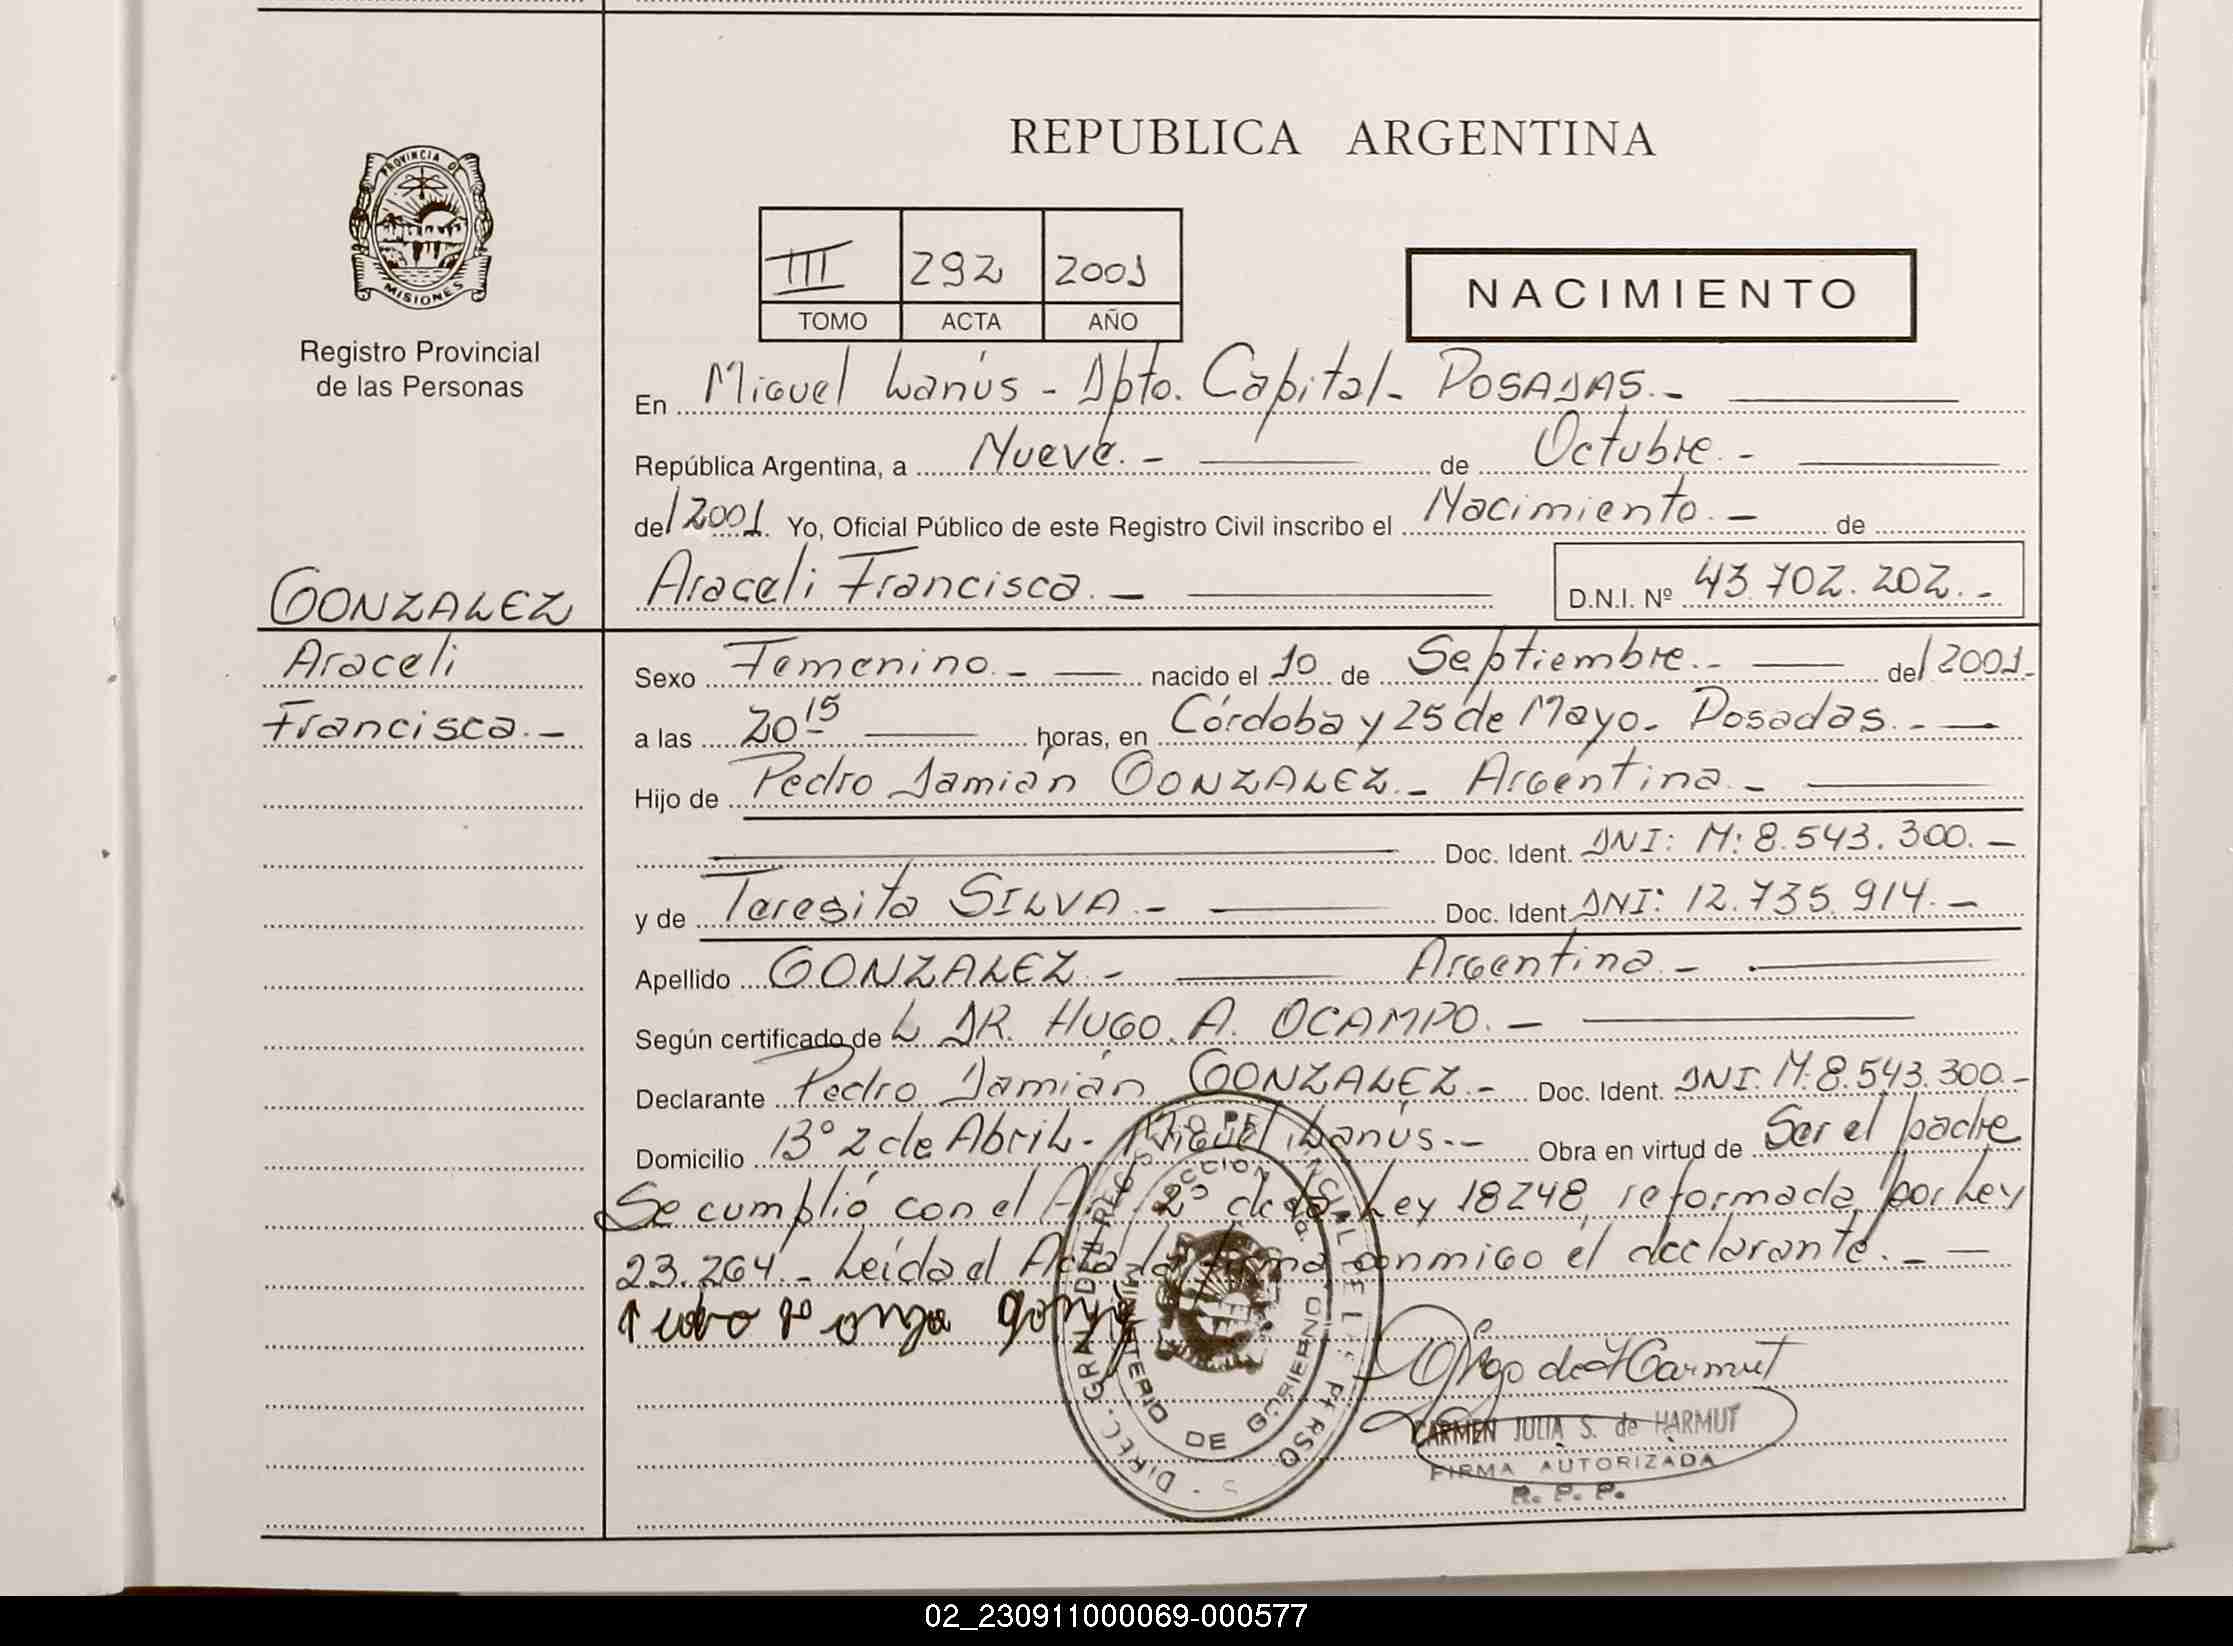 REPUBLICA ARGENTINA
PROVINCIA DE
MISIONES
Registro Provincial
de las Personas
III 292 2001
TOMO ACTA AÑO
NACIMIENTO
En Miguel Lanús - Dpto. Capital - POSADAS.-
República Argentina, a Nueve.- de Octubre.-
de/2001. Yo, Oficial Público de este Registro Civil inscribo el Nacimiento.- de
GONZALEZ
Araceli
Francisca.-
Araceli Francisca.- D.N.I. Nº 43.702.202.-
Sexo Femenino.- nacido el 10 de Septiembre.- de/2001.-
a las 20 15 horas, en Córdoba y 25 de Mayo - Posadas.-
Hijo de Pedro Damián GONZALEZ.- Argentina.-
Doc. Ident. DNI: M: 8.543.300.-
y de Teresita SILVA.- Doc. Ident. DNI: 12.735.914.-
Apellido GONZALEZ.- Argentina.-
Según certificado de L DR. HUGO. A. OCAMPO.-
Declarante Pedro Damián GONZALEZ.- Doc. Ident. DNI. M. 8.543.300.-
Domicilio Bº 2 de Abril - Miguel Lanús.-- Obra en virtud de Ser el padre
Se cumplió con el Art. 2º de la Ley 18248, reformada por Ley
23.264.- Leída el Acta la firma conmigo el declarante.-
de Harmut
CARMEN JULIA S. de HARMUT
FIRMA AUTORIZADA
R. P. P.
MINISTERIO DE GOBIERNO
02_230911000069-000577